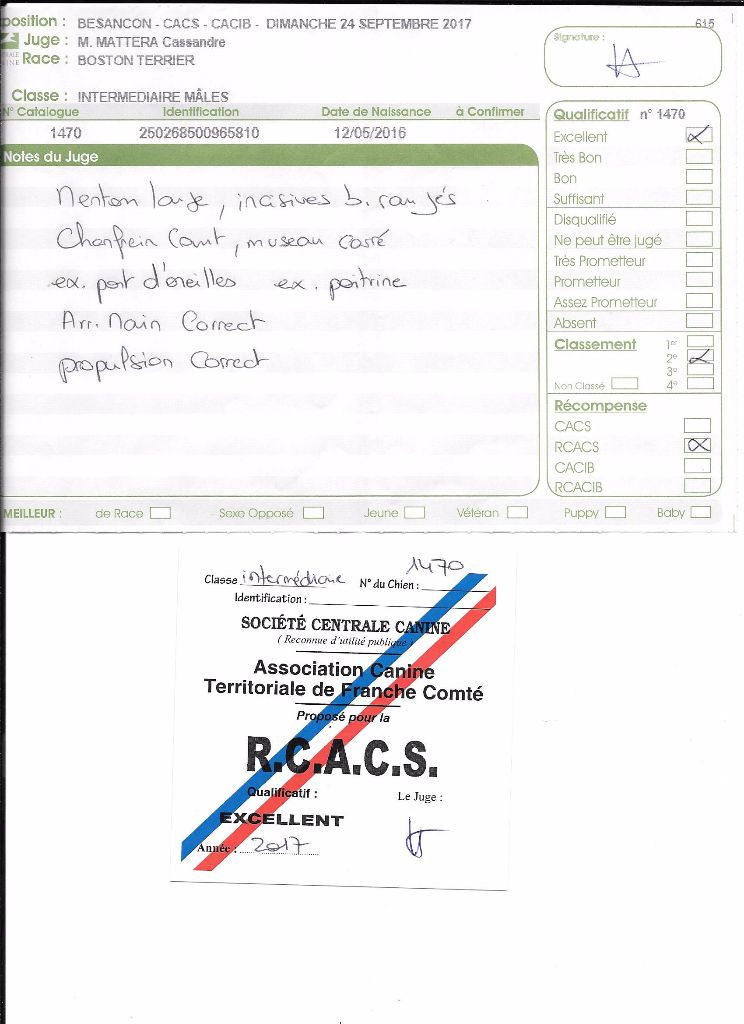 position : BESANCON - CACS - CACIB - DIMANCHE 24 SEPTEMBRE 2017
615
Juge : M. MATTERA Cassandre
Race : BOSTON TERRIER
Signature :
Classe : INTERMEDIAIRE MÂLES
N° Catalogue Identification Date de Naissance à Confirmer
1470 250268500965810 12/05/2016
Notes du Juge
Menton large, incisives b. rangés
Chanfrein Court, museau carré
ex. port d'oreilles ex. poitrine
Arr. Main Correct
propulsion Correct
Qualificatif n° 1470
Excellent
Très Bon
Bon
Suffisant
Disqualifié
Ne peut être jugé
Très Prometteur
Prometteur
Assez Prometteur
Absent
Classement 1er
2e
3e
Non Classé 4e
Récompense
CACS
RCACS
CACIB
RCACIB
MEILLEUR : de Race Sexe Opposé Jeune Vétéran Puppy Baby
Classe intermédiaire N° du Chien : 1470
Identification :
SOCIÉTÉ CENTRALE CANINE
( Reconnue d'utilité publique )
Association Canine
Territoriale de Franche Comté
Proposé pour la
R.C.A.C.S.
Qualificatif : Le Juge :
EXCELLENT
Année : 2017